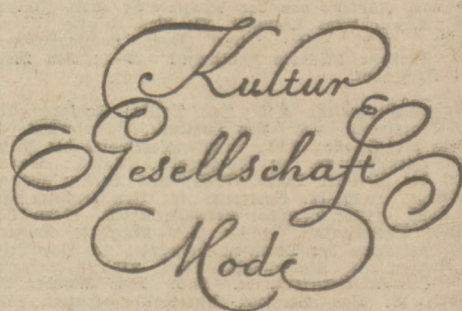 Kultur
Gesellschaft
Mode